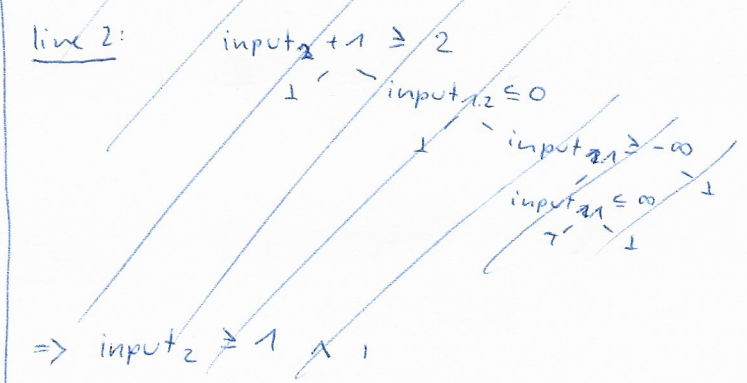 line 2: input₂ + 1 ≥ 2
⊥ input₁.₂ ≤ 0
⊥ input ≥ -∞
input ≤ ∞ ⊥
⊤ ⊥
=> input₂ ≥ 1 ∧